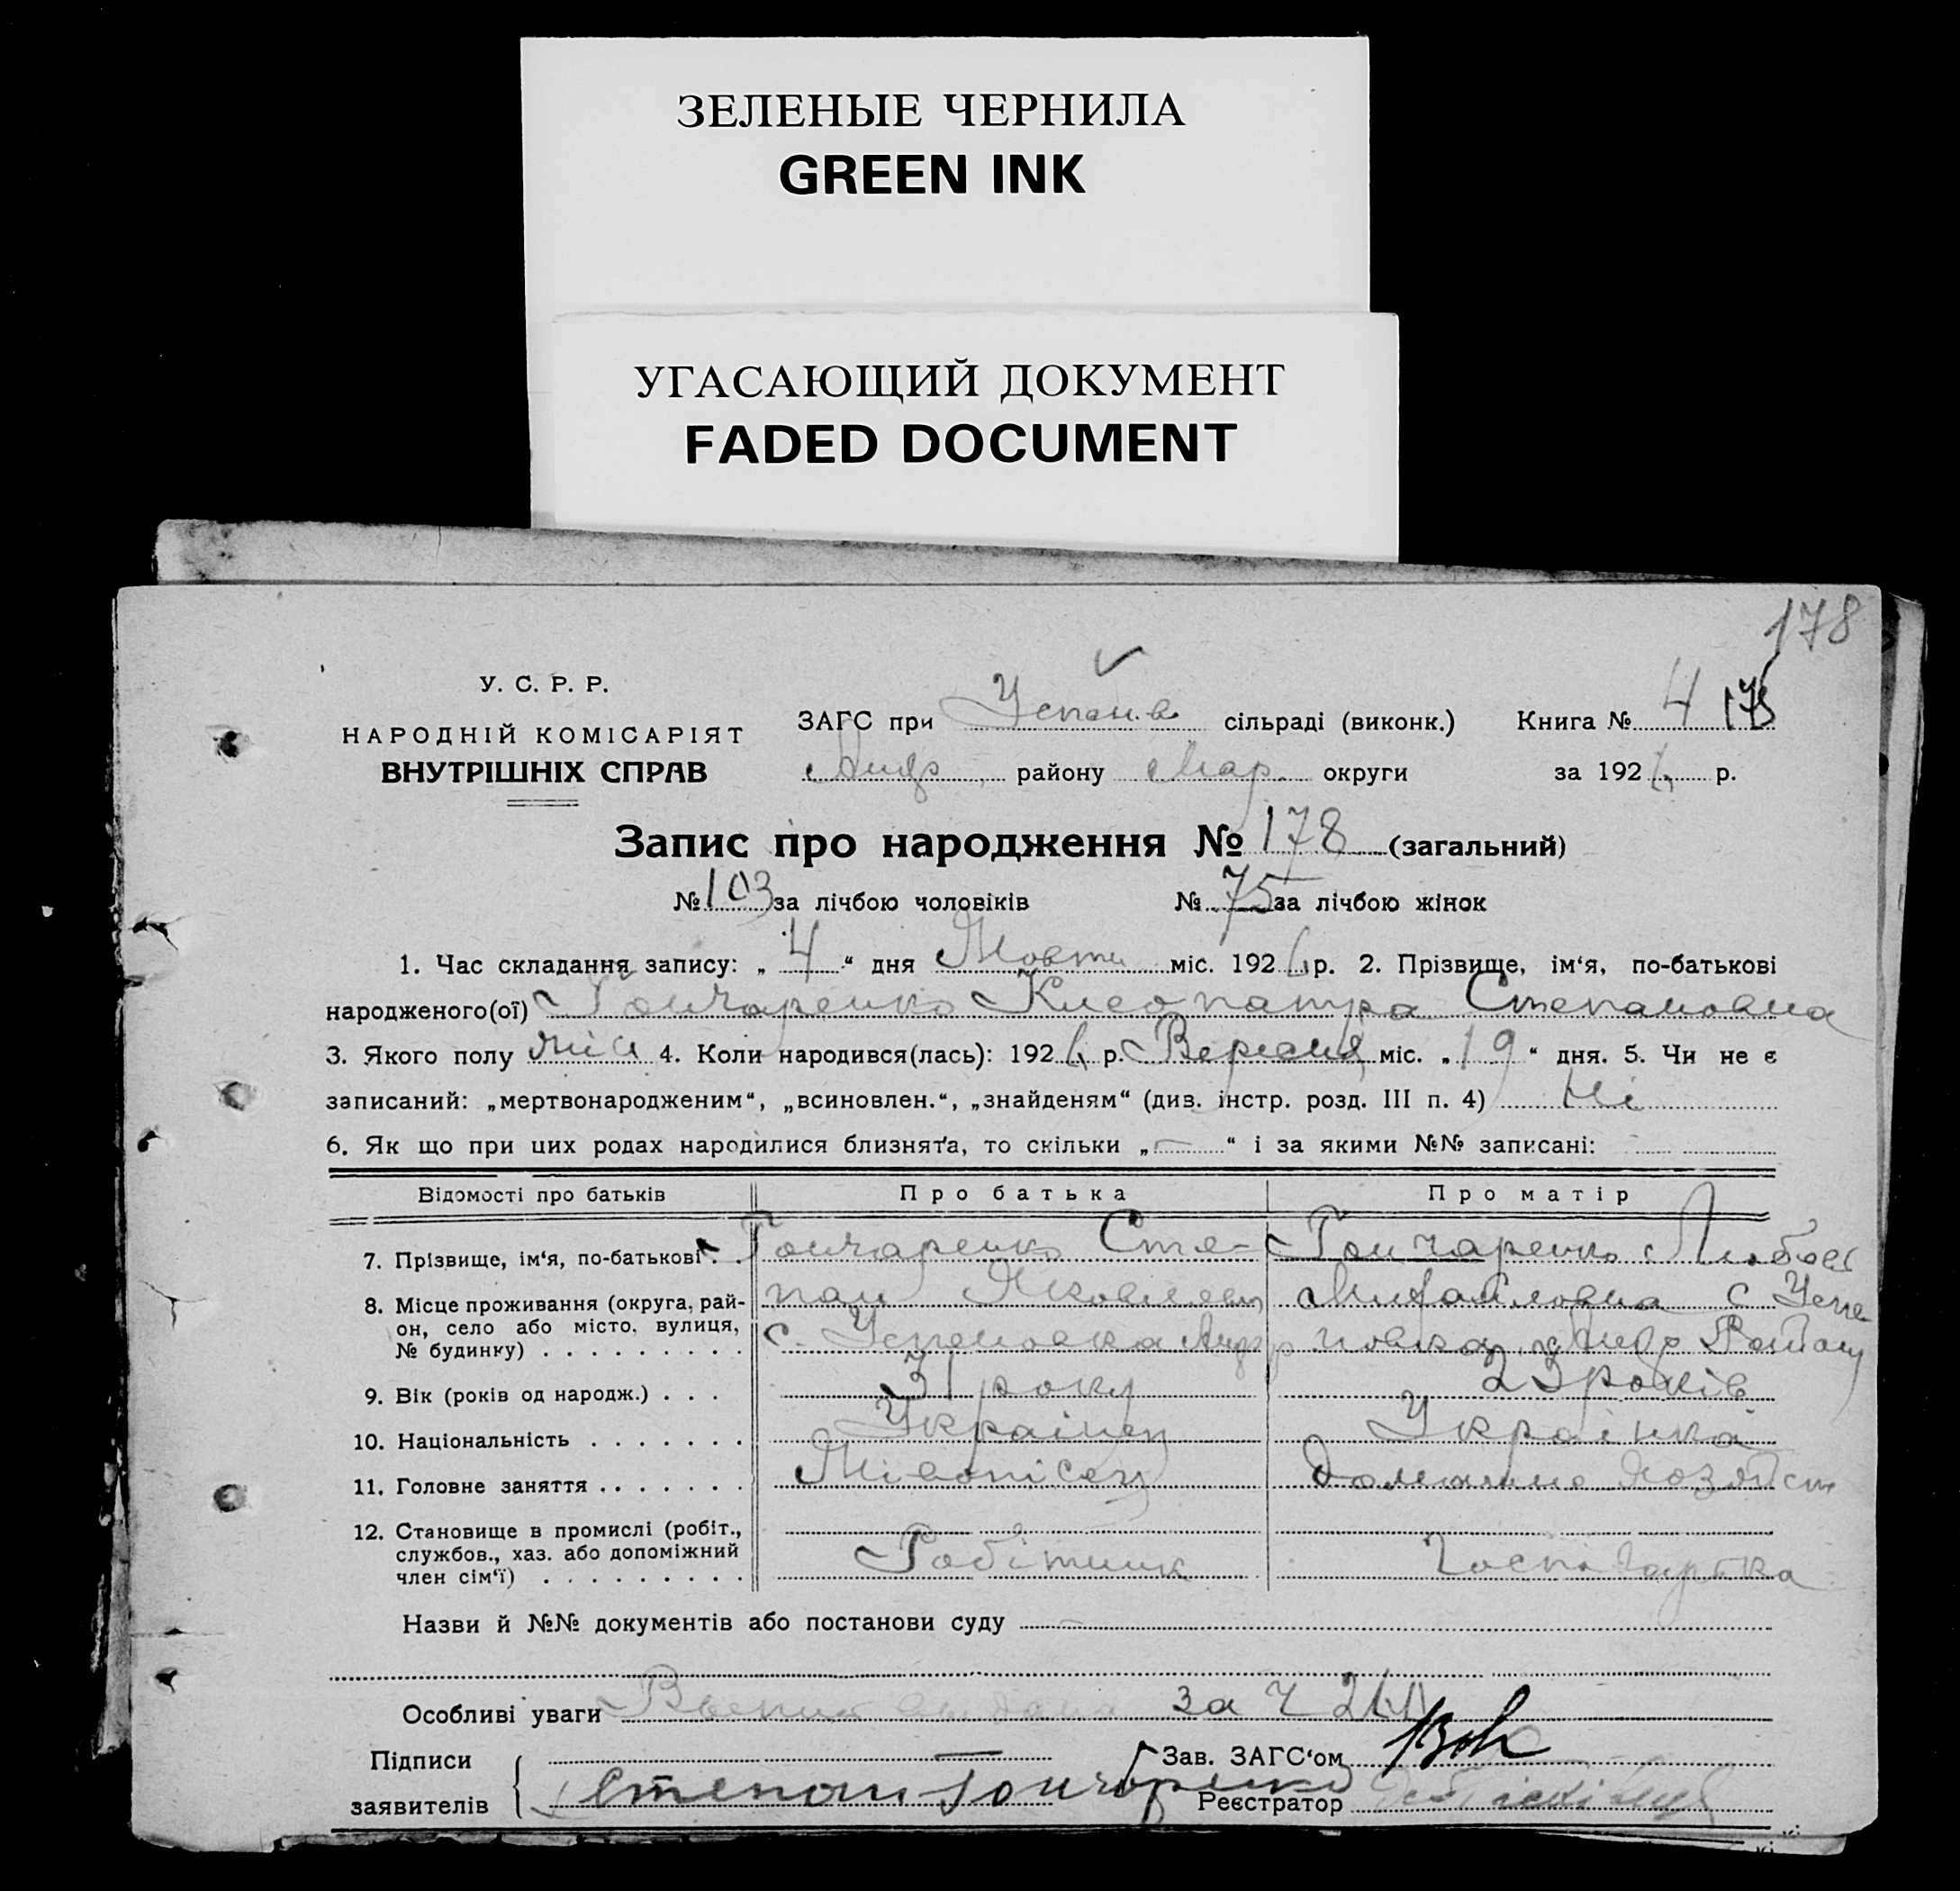 ЗЕЛЕНЫЕ ЧЕРНИЛА
GREEN INK
УГАСАЮЩИЙ ДОКУМЕНТ
FADED DOCUMENT
178
У. С. Р. Р.
НАРОДНІЙ КОМІСАРІЯТ
ВНУТРІШНІХ СПРАВ
ЗАГС при Успенів сільраді (виконк.) Книга № 4 178
Андр району Мар. округи за 192 р.
Запис про народження № 178 (загальний)
№ 103 за лічбою чоловіків № 75 за лічбою жінок
1. Час складання запису: „ 4 “ дня Жовтн міс. 192 р. 2. Прізвище, ім‘я, по-батькові
народженого(ої) Гончаренко Клеопатра Степановна
3. Якого полу жін 4. Коли народився(лась): 192 р. Вересня міс. „ 19 “ дня. 5. Чи не є
записаний: „мертвонародженим“, „всиновлен.“, „знайденям“ (див. інстр. розд. III п. 4) Ні
6. Як що при цих родах народилися близнята, то скільки „ — “ і за якими №№ записані:
Відомості про батьків Про батька Про матір
7. Прізвище, ім‘я, по-батькові . . Гончаренко Сте- Гончаренко Любов
8. Місце проживання (округа, рай- пан Яковлевич Михайловна с Успе
он, село або місто, вулиця, с. Успеновка Андр р новка Андр Району
№ будинку) . . . . . . . . .
9. Вік (років од народж.) . . . 31 року 23 років
10. Національність . . . . . . . Українец Українка
11. Головне заняття . . . . . . . Живопісец Домашнє хозяйст
12. Становище в промислі (робіт.,
службов., хаз. або допоміжний Робітник Господарка
член сім‘ї) . . . . . . . . .
Назви й №№ документів або постанови суду —
Особливі уваги за Ч
Підписи — Зав. ЗАГС‘ом
заявителів Степан Гончаренко Реєстратор